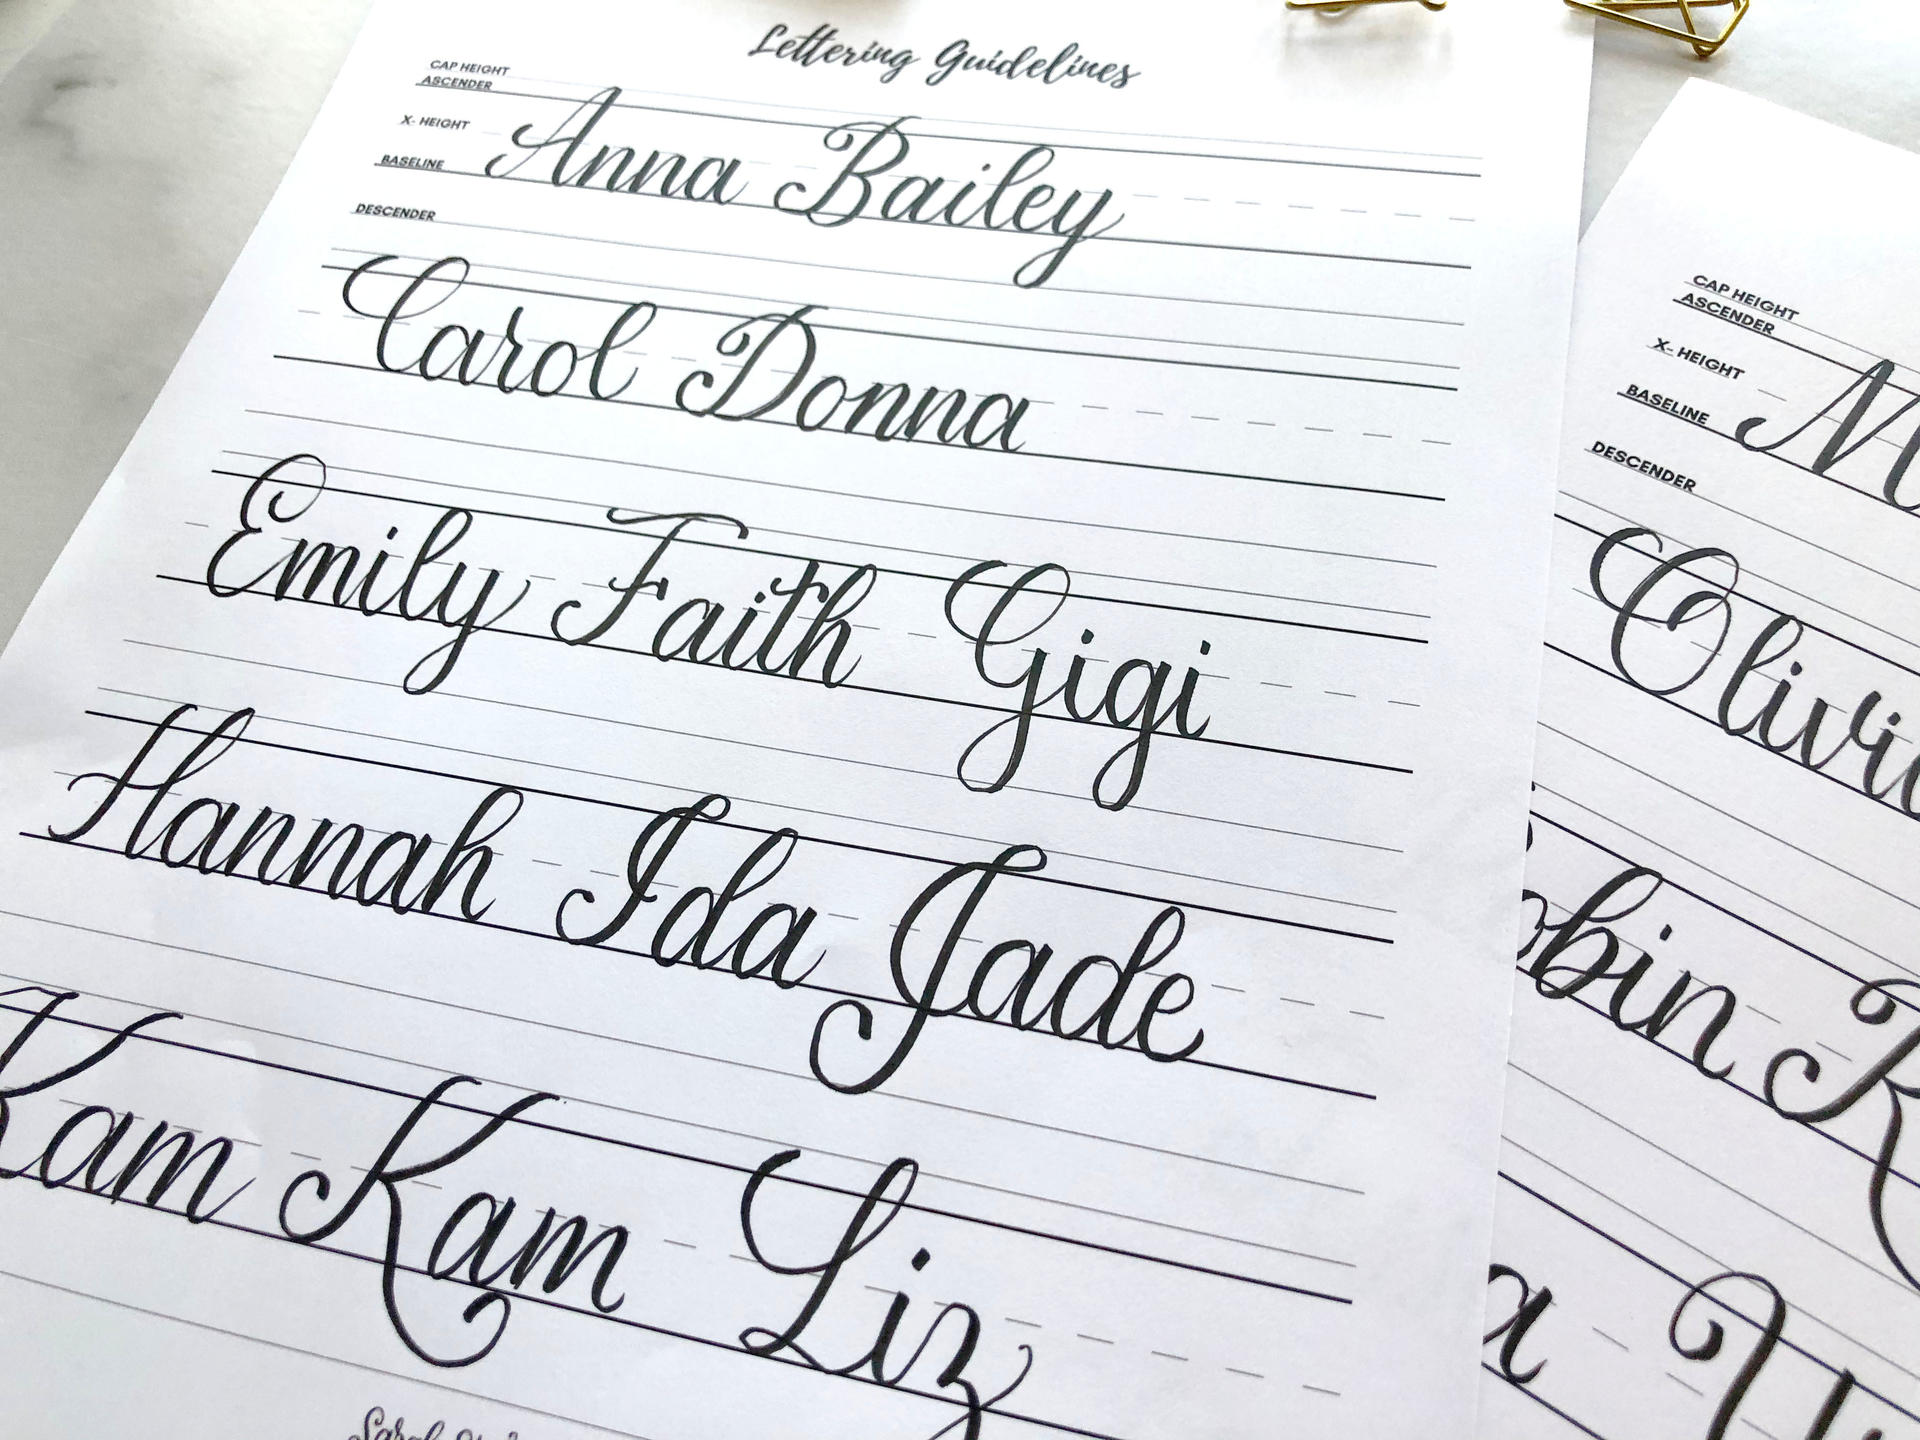 Lettering Guidelines
CAP HEIGHT
ASCENDER
X- HEIGHT
BASELINE
DESCENDER
Anna Bailey
Carol Donna
Emily Faith Gigi
Hannah Ida Jade
Kam Kam Liz
Sarah
CAP HEIGHT
ASCENDER
X- HEIGHT
BASELINE
DESCENDER
M
Olivi
obin R
a